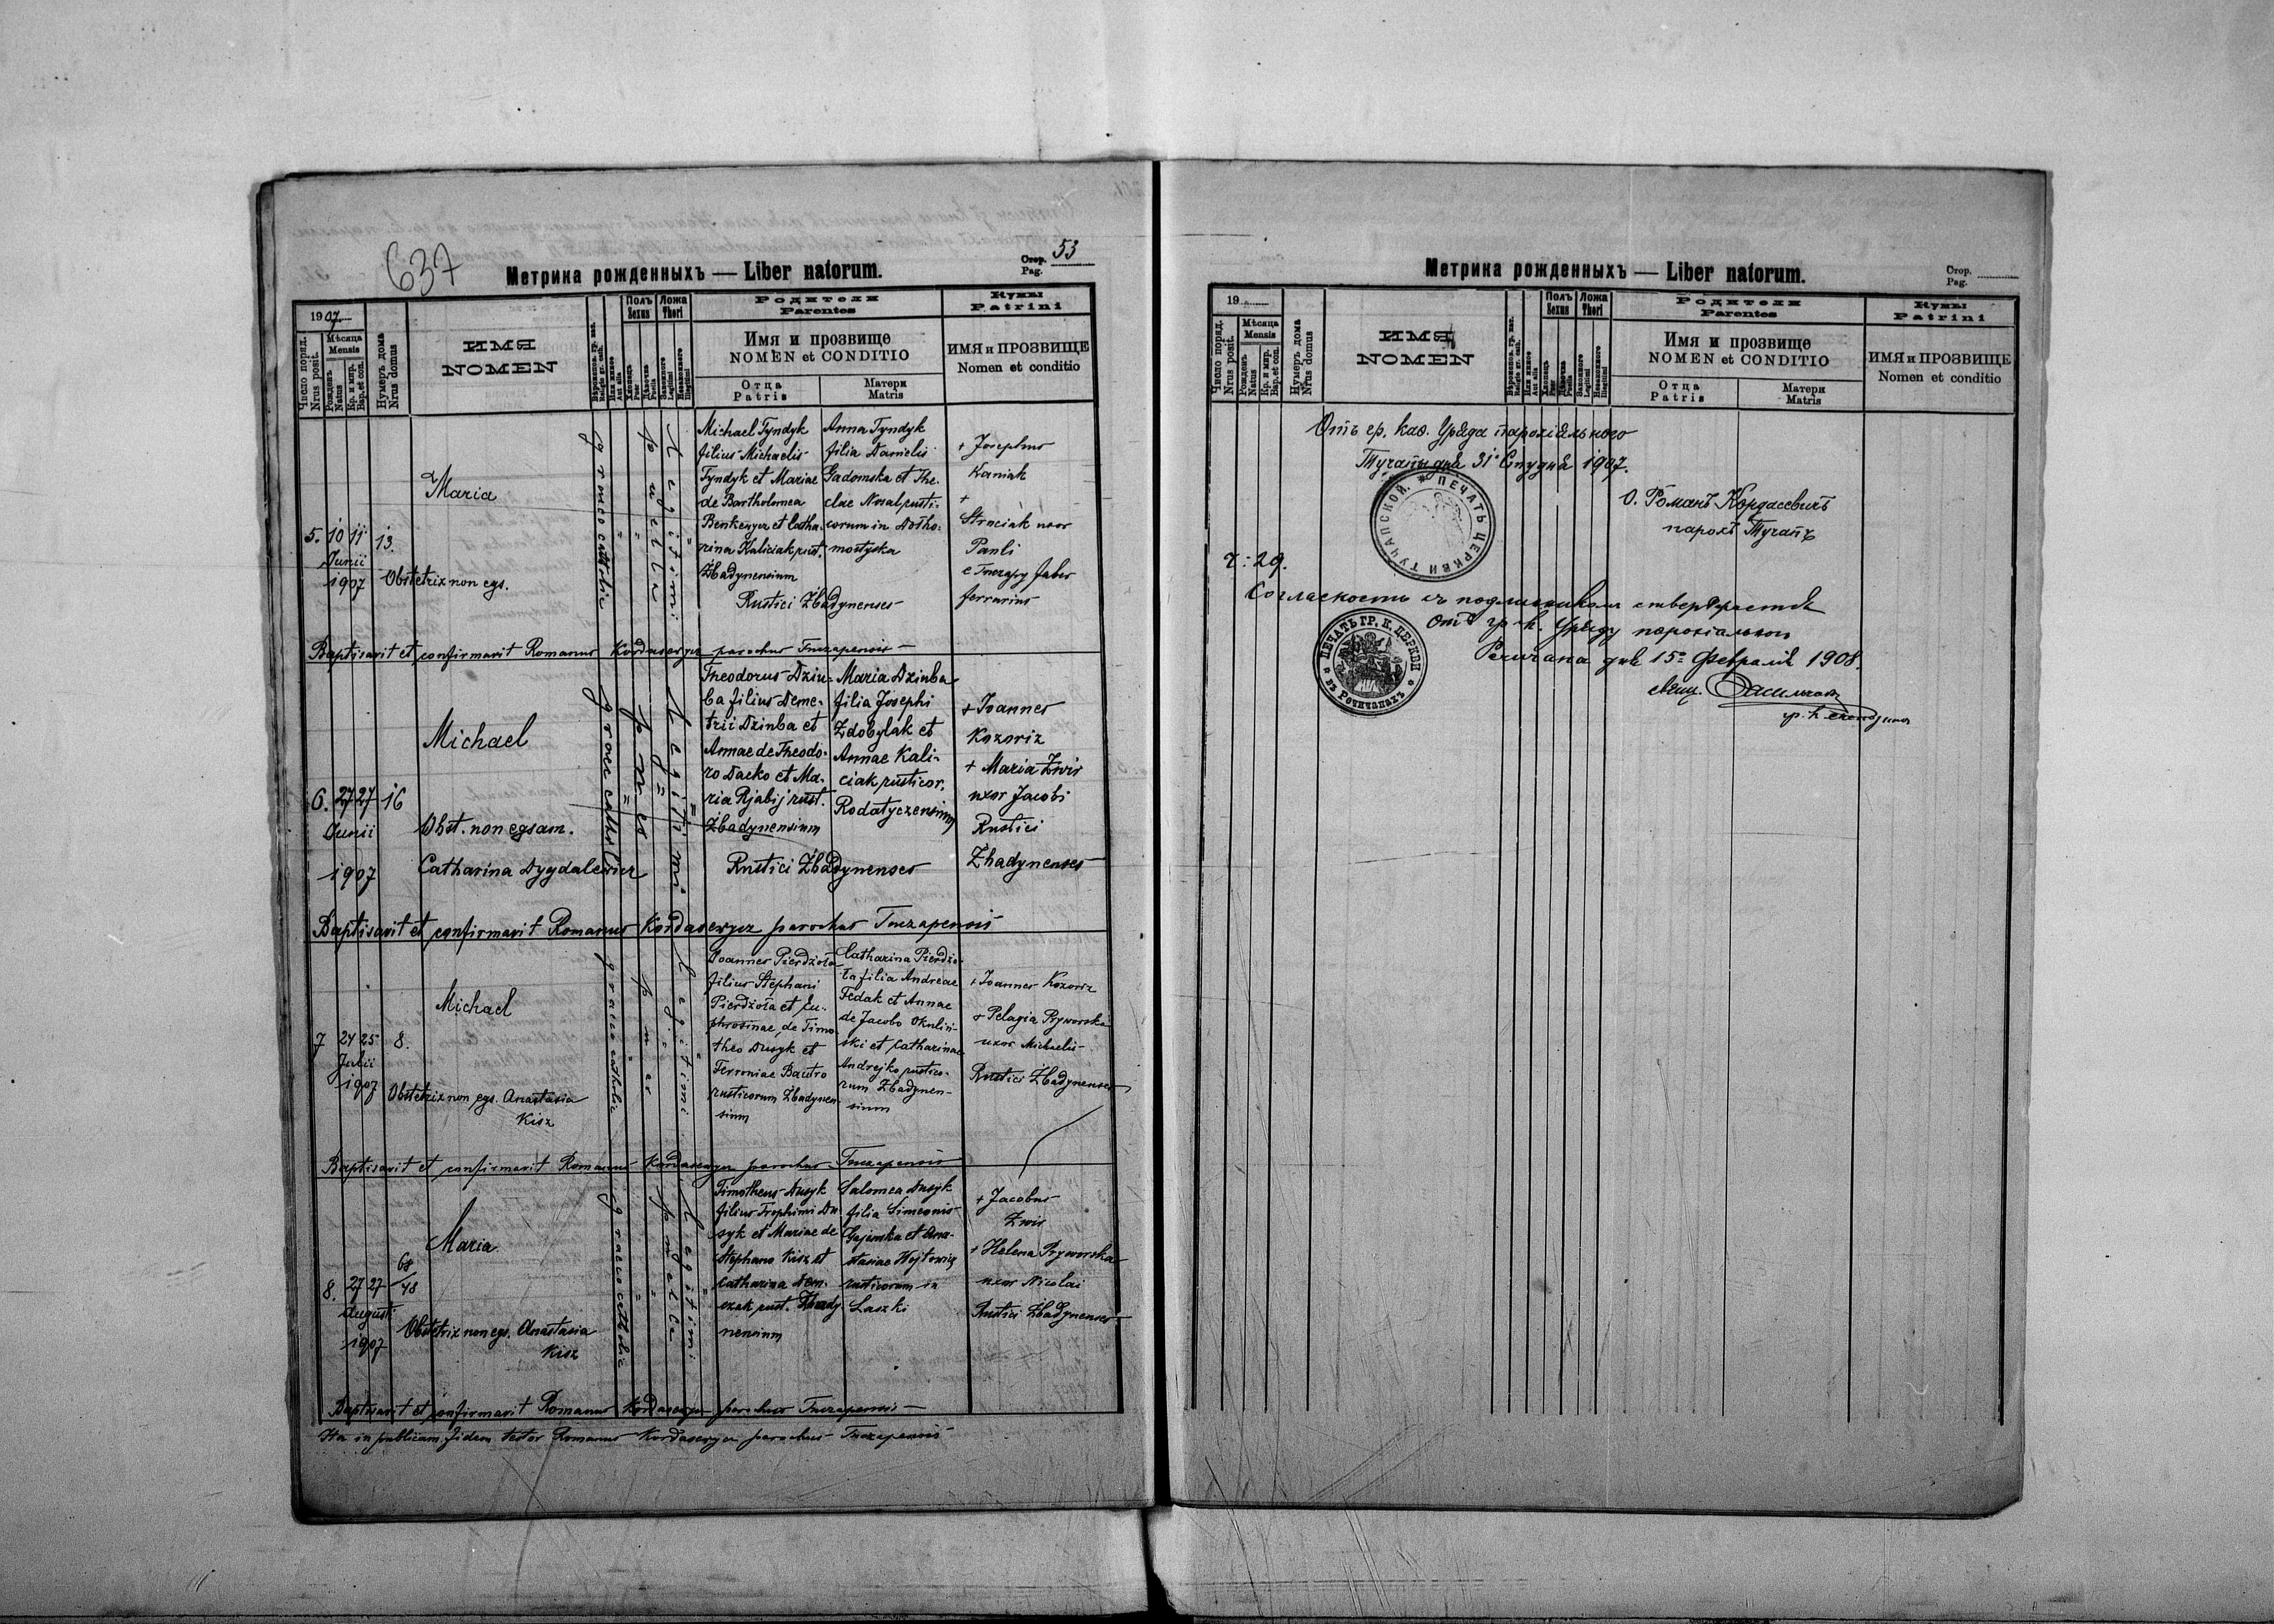 637
53
Метрика рожденныхъ — Liber natorum.
Стор.
Pag.
1907
Число поряд.
Nrus posit.
Мѣсяца
Mensis
Рожденъ
Natus
Кр. и мир.
Bap. et con.
Нумеръ дома
Nrus domus
ИМЯ
NOMEN
Полъ
Sexus
Ложа
Thori
Родители
Parentes
Имя и прозвище
NOMEN et CONDITIO
Отца
Patris
Матери
Matris
Кумы
Patrini
ИМЯ и ПРОЗВИЩЕ
Nomen et conditio
5. 10 11 13.
Junii
1907
Maria
Obstetrix non egs.
graeco catholic
puella
Legitimi
Michael Tyndyk
filius Michaelis
Tyndyk et Mariae
de Bartholomeo
rina Kaliciak rust.
Żbadynensium
Anna Tyndyk
filia Danielis
Gadomska et The-
clae Nosal rusti-
corum in Dotho-
mostyska
Rustici Żbadynenses
+ Josephus
Kaniak
+
Struciak uxor
Pauli
e Tuczapy faber
ferrarius
Baptisavit et confirmavit Romanus Kordasewycz parochus Tuczapensis
6. 27 27 16
Junii
1907
Michael
Obst. non egsam.
Catharina Dygdalewicz
graec cathol
puer
Legitimi
Theodorus Dziu-
ba filius Deme-
trii Dziuba et
Annae de Theodo-
ro Dacko et Ma-
ria Rjabij rust.
Żbadynensium
Maria Dziuba
filia Josephi
Zdobylak et
Annae Kali-
ciak rusticor.
Rodatyczensium
Rustici Żbadynenses
+ Ioannes
Kozoriz
+ Maria Zwir
uxor Jacobi
Rustici
Żbadynenses
Baptisavit et confirmavit Romanus Kordasewycz parochus Tuczapensis
7 24 25 8.
Julii
1907
Michael
Obstetrix non egs. Anastasia
Kisz
graeco catholic
puer
Legitimi
Ioannes Pierdżoła
filius Stephani
Pierdżoła et Eu-
phrosinae de Timo-
theo Dusyk et
Ferroniae Bautro
rusticorum Żbadynen-
sium
Catharina Pierdżo-
ła filia Andreae
Fedak et Annae
de Jacobo Okuliń-
ski et Catharinae
Andrejko rustico-
rum Żbadynen-
sium
+ Ioannes Kozoriz
+ Pelagia Pryworska
uxor Michaelis
Rustici Żbadynenses
Baptisavit et confirmavit Romanus Kordasewycz parochus Tuczapensis
8. 27 27 68/48
Augusti
1907
Maria
Obstetrix non egs. Anastasia
Kisz
graeco catholic
puella
Legitimi
Timotheus Dusyk
filius Trophimi Du-
syk et Mariae de
Stephano Kisz et
Catharina Dem-
czak rust. Żbady-
nensium
Salomea Dusyk
filia Simeonis
Gajewska et Ana-
stasiae Wojtowicz
rusticorum in
Laszki
+ Jacobus
Zwir
+ Helena Pryworska
uxor Nicolai
Rustici Żbadynenses
Baptisavit et confirmavit Romanus Kordasewycz parochus Tuczapensis
Ita in publicam fidem testor Romanus Kordasewycz parochus Tuczapensis
Метрика рожденныхъ — Liber natorum.
Стор.
Pag.
19
Число поряд.
Nrus posit.
Мѣсяца
Mensis
Рожденъ
Natus
Кр. и мир.
Bap. et con.
Нумеръ дома
Nrus domus
ИМЯ
NOMEN
Полъ
Sexus
Ложа
Thori
Родители
Parentes
Имя и прозвище
NOMEN et CONDITIO
Отца
Patris
Матери
Matris
Кумы
Patrini
ИМЯ и ПРОЗВИЩЕ
Nomen et conditio
Отъ гр. каѳ. Уряда парохіального
Тучапы дня 31 Студня 1907.
ПЕЧАТЬ ЦЕРКВИ ТУЧАПСКОЙ.
О. Романъ Кордасевичъ
парохъ Тучапъ
Ч: 29.
Согласность съ подлинникомъ
Отъ гр-к. Уряду парохіальног
дня 15 Февраля 1908.
ПЕЧАТЬ ГР. К. ЦЕРКВИ
свящ.